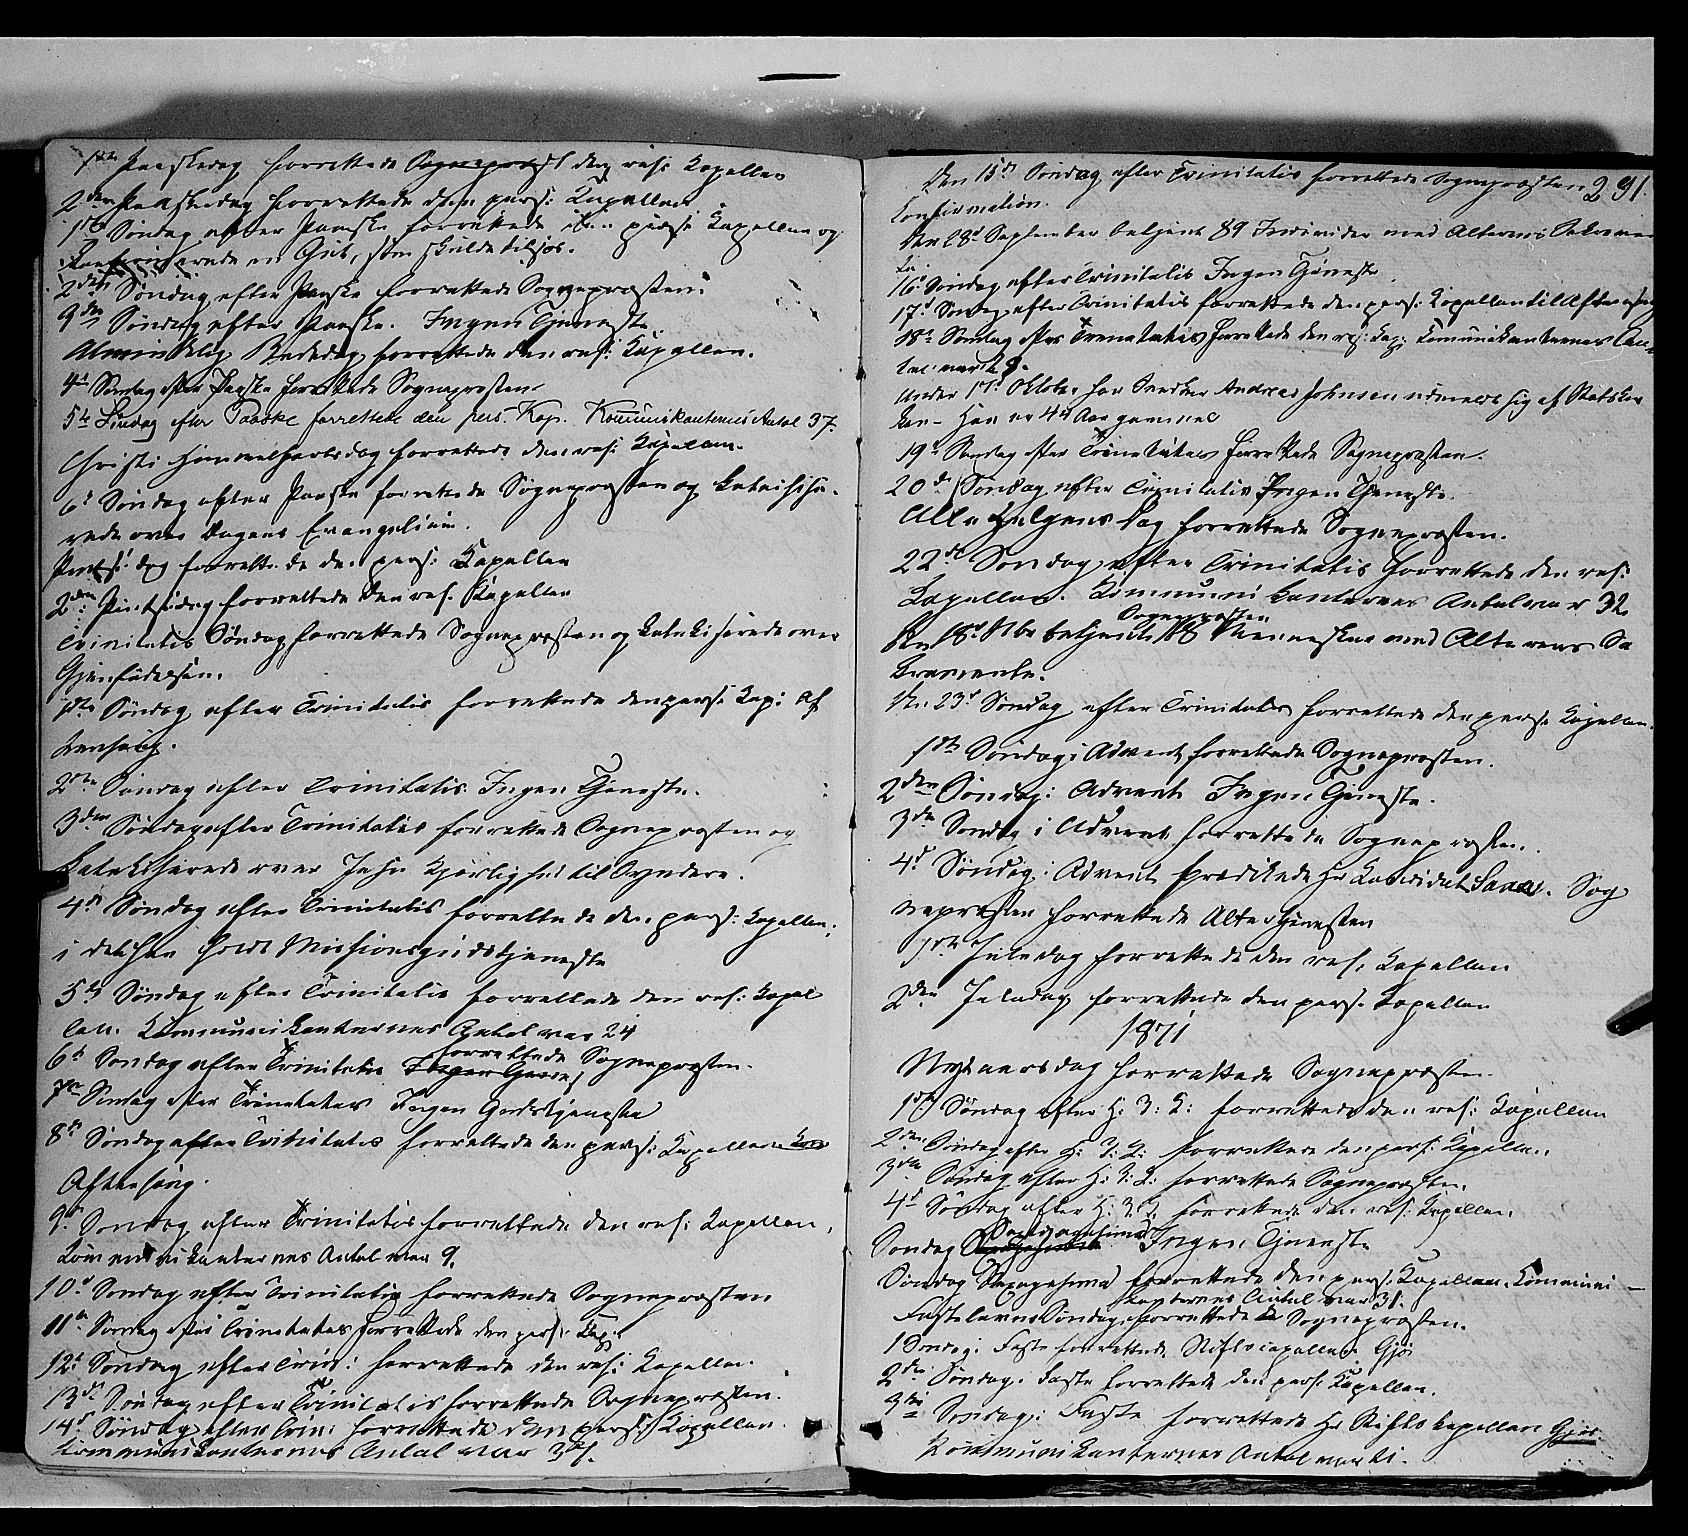 1ste Paaskedag forrettede Sognepræst den res: Kapellan
2den Paaskedag forrettede den pers: Kapellan
1ste Søndag efter Paaske forrettede den pers: Kapellan og
en Gut, som skulde tilsjøs.
2den Søndag efter Paaske forrettede Sognepræsten.
3den Søndag efter Paaske. Ingen Tjeneste.
Almindelig Bededag forrettede den res: Kapellan.
4de Søndag efter Paaske forrettede Sognepræsten
5te Søndag efter Paaske forrettede den pers. Kap. Kommunikanternes Antal 37.
Christi Himmelfartsdag forrettede den res: Kapellan.
6te Søndag efter Paaske forrettede Sognepræsten og katechise-
rede over Dagens Evangelium.
Pintsedag forrettede den pers: Kapellan
2den Pintsedag forrettede den res. Kapellan
Trinitatis Søndag forrettede Sognepræsten og katekiserede over
Gjenfødelsen.
1ste Søndag efter Trinitatis forrettede den pers: Kap: Af
tensang.
2den Søndag efter Trinitatis Ingen Tjeneste.
3den Søndag efter Trinitatis forrettede Sognepræsten og
katekiserede over Jesu Kjærlighed til Syndere.
4de Søndag efter Trinitatis forrettede den pers: Kapellan,
i det han holdt Missionsgudstjeneste
5te Søndag efter Trinitatis forrettede den res: Kapel
lan. Kommunikanternes Antal var 24
6te Søndag efter Trinitatis Ingen forrettede Sognepræsten.
7de Søndag efter Trinitatis Ingen Gudstjeneste
8de Søndag efter Trinitatis forrettede den pers: Kapellan
Aftensang.
9de Søndag efter Trinitatis forrettede den res: Kapellan,
Kommunikanternes Antal var 9.
10de Søndag efter Trinitatis forrettede Sognepræsten
11te Søndag efter Trinitatis forrettede den pers: Kap:
12te Søndag efter Trin: forrettede den res: Kapellan.
13de Søndag efter Trinitatis forrettede Sognepræsten.
14de Søndag efter Trin: forrettede den pers: Kapellan.
Kommunikanternes Antal var
Den 15de Søndag efter Trinitatis forrettede Sognepræsten 291.
Confirmation.
Den 28de September betjent 89 Individer med Alterens Sakramen
te.
16de Søndag efter Trinitatis Ingen Tjeneste.
17de Søndag efter Trinitatis forrettede den pers: Kapellan til Aftensang
18de Søndag efter Trinitatis forrettede den res: Kap: Kommunikanternes An-
tal var
Under 17de Oktober har Snedker Andreas Johnsen udmeldt sig af Statskir
ken. Han er 44 Aar gammel
19de Søndag efter Trinitatis forrettede Sognepræsten.
20de Søndag efter Trinitatis Ingen Tjeneste.
Alle Helgens Dag forrettede Sognepræsten.
22de Søndag efter Trinitatis forrettede den res:
Kapellan. Kommunikanternes Antal var 32
Den 18de Nbr betjente Sognepræsten 18 Mennesker med Alterens Sa
kramente.
Den 23de Søndag efter Trinitatis forrettede den pers: Kapellan.
1ste Søndag i Advent forrettede Sognepræsten.
2den Søndag i Advent Ingen Tjeneste.
3die Søndag i Advent forrettede Sognepræsten.
4de Søndag i Advent prædikede Hr Kandidat Sog
nepræsten forrettede Altertjenesten
1ste Juledag forrettede den res: Kapellan
2den Juledag forrettede den pers. Kapellan
1871
Nytaarsdag forrettede Sognepræsten.
1ste Søndag efter H: 3: K: forrettede den res: Kapellan
2den Søndag efter H: 3: K: forrettede den pers: Kapellan.
3die Søndag efter H: 3: K: forrettede Sognepræsten.
4de Søndag efter H: 3: K. forrettede den res: Kapellan.
Søndag Septuagesima Ingen Tjeneste
Søndag Sexagesima forrettede den pers: Kapellan. Kommuni-
kanternes Antal var 31.
Fastelavns Søndag forrettede Sognepræsten.
1 Søndag i Faste forrettede Stiftscapellan Gjør
2den Søndag i Faste forrettede den pers: Kapellan.
3die Søndag i Faste forrettede Hr Stiftskapellan
Kommunikanternes Antal var